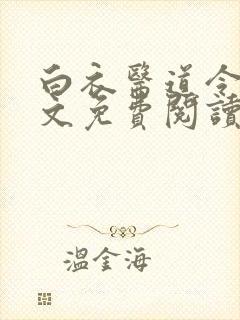 白衣醫道令
文免費閱讀
溫金海